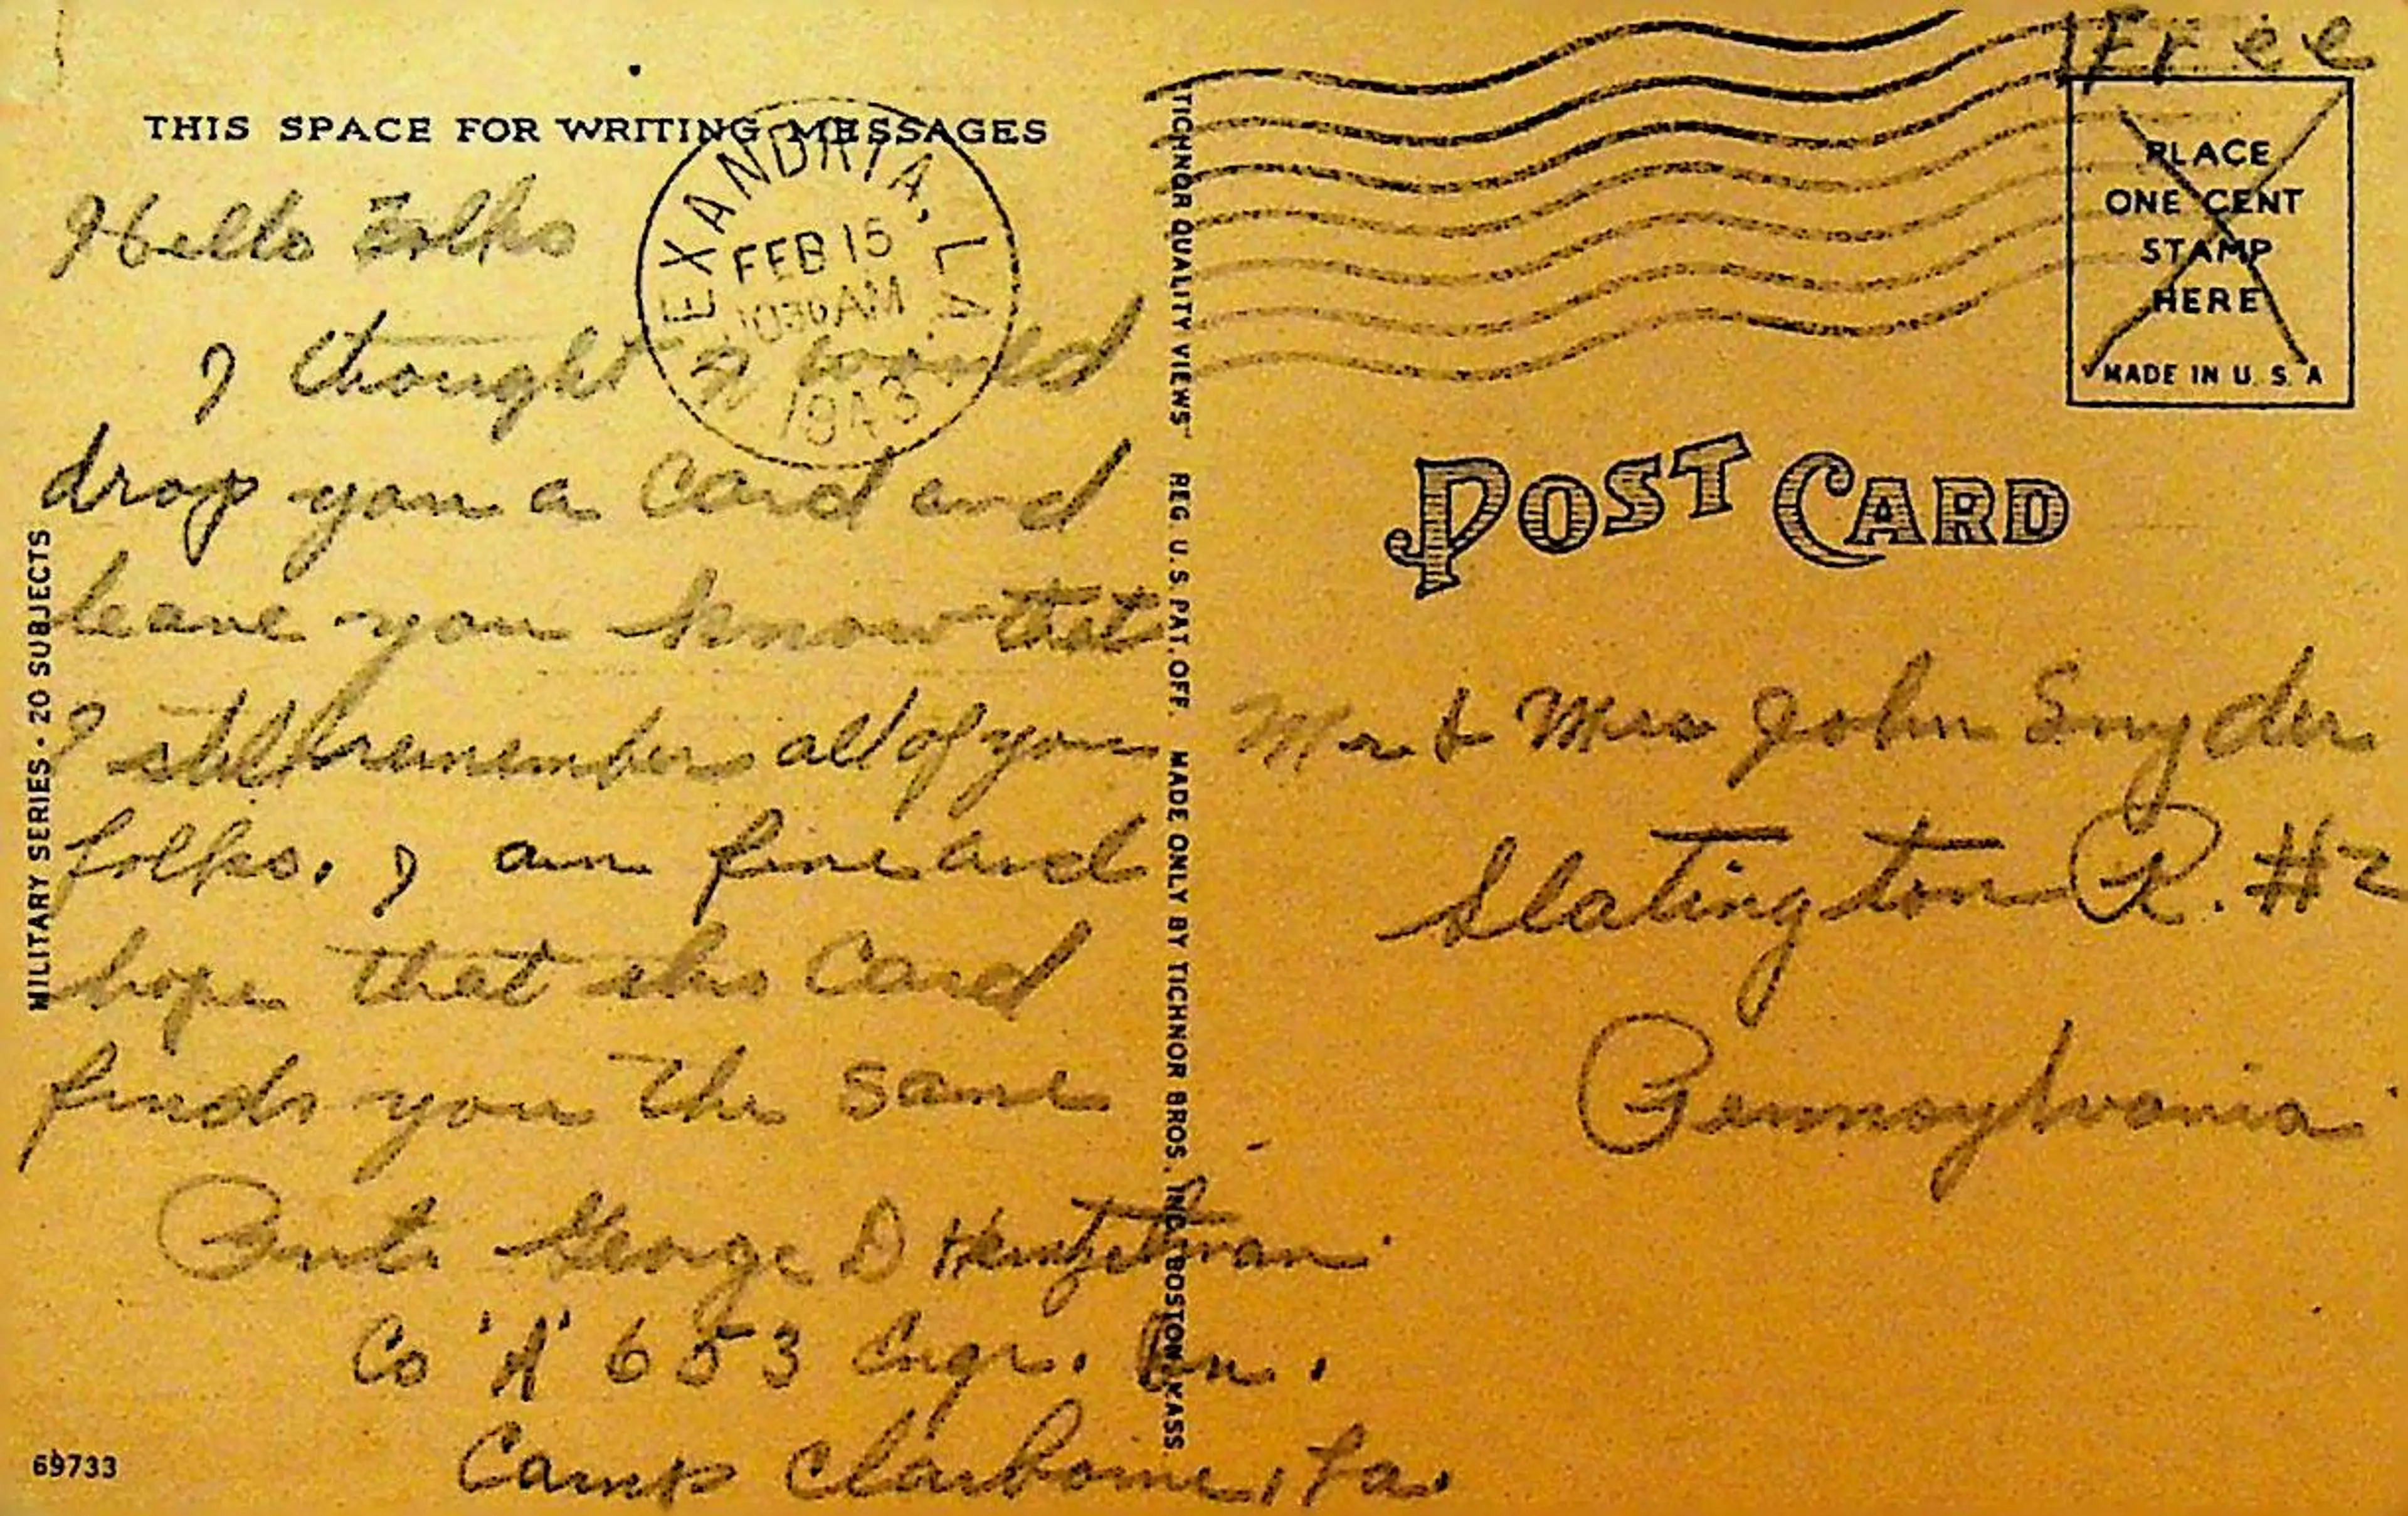 THIS SPACE FOR WRITING MESSAGES
Hello Folks
I thought I would
drop you a card and
leave you know that
I still remember all of you
folks. I am fine and
hope that this card
finds you the same
George D Heintzelman
Co 'A' 653 Engr. Bn.
Camp Claiborne, La.
69733
MILITARY SERIES - 20 SUBJECTS
EXANDRIA, LA.
FEB 15
1030 AM
1943
"TICHNOR QUALITY VIEWS" REG. U.S. PAT. OFF. MADE ONLY BY TICHNOR BROS. INC. BOSTON, MASS.
Free
PLACE
ONE CENT
STAMP
HERE
MADE IN U. S. A
POST CARD
Mr & Mrs John Snyder
Slatington R. #2
Pennsylvania